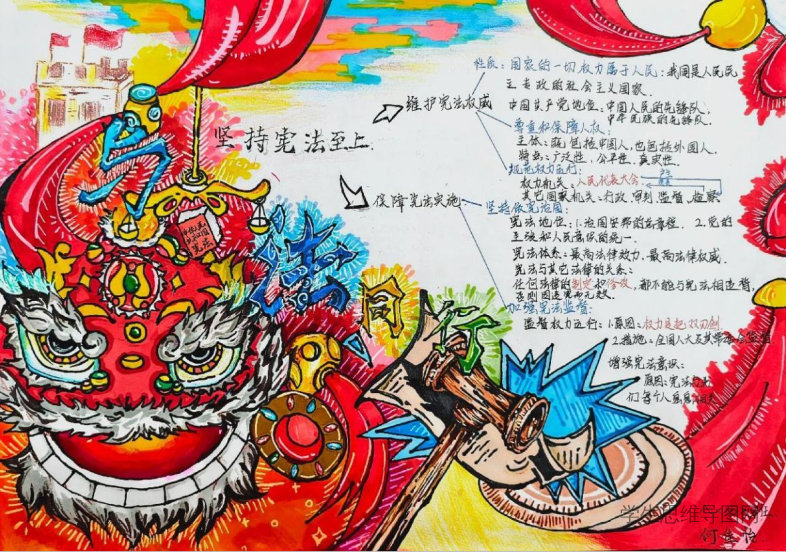 与
法
同
行
中华人民共和国
宪法
坚持宪法至上
维护宪法权威
保障宪法实施
性质：国家的一切权力属于人民：我国是人民民
主专政的社会主义国家.
中国共产党地位：中国人民的先锋队，
中华民族的先锋队.
尊重和保障人权：
主体：既包括中国人，也包括外国人.
特点：广泛性，公平性，真实性.
规范权力运行：
权力机关：人民代表大会
其它国家机关：行政 审判 监督 检察
坚持依宪治国：
宪法地位：1.治国安邦的总章程. 2.党的
主张和人民意识的统一.
宪法体系：最高法律效力，最高法律权威.
宪法与其它法律的关系：
任何法律的制定和修改，都不能与宪法相违背，
否则因违宪而无效.
加强宪法监督：
监督权力运行：1.原因：权力是把双刃剑
2.措施：全国人大及其常委会监督
增强宪法意识：
原因：宪法与我
们每个人息息相关
学生思维导图网